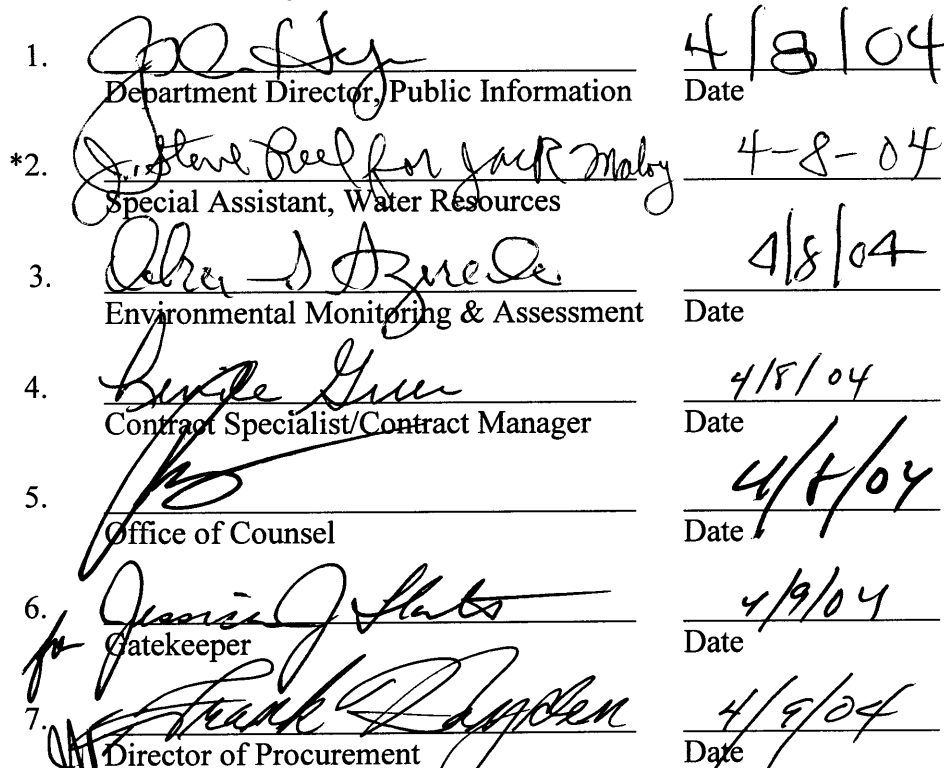 1. 4/8/04
Department Director, Public Information Date
*2. J. Steve Reel for Jack Maloy 4-8-04
Special Assistant, Water Resources
3. 4/8/04
Environmental Monitoring & Assessment Date
4. 4/8/04
Contract Specialist/Contract Manager Date
5. 4/8/04
Office of Counsel Date
6. Jessica J 4/9/04
for Gatekeeper Date
7. Frank Hayden 4/9/04
Director of Procurement Date